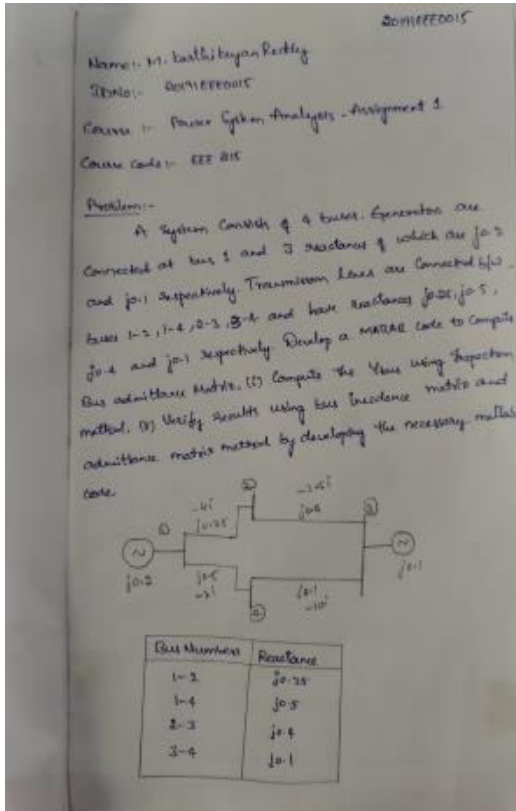 20191EEE0015
Name:- M. Karthikeyan Reddy
IDNo:- 20191EEE0015
Course :- Power System Analysis - Assignment 1
Course code:- EEE 215
Problem:-
A System Consists of 4 buses. Generators are
Connected at bus 1 and 3 reactance of which are j0.2
and j0.1 respectively. Transmission lines are Connected b/w
buses 1-2, 1-4, 2-3, 3-4 and have reactances j0.25, j0.5,
j0.4 and j0.1 respectively. Develop a MATLAB code to Compute
Bus admittance Matrix. (i) Compute the Ybus using Inspection
method. (ii) Verify results using bus incidence matrix and
admittance matrix method by developing the necessary matlab
code.
② -2.5i
-4i j0.4 ③
① j0.25
~ ~
j0.2 j0.5 j0.1 j0.1
-2i -10i
④
Bus Numbers Reactance
1-2 j0.25
1-4 j0.5
2-3 j0.4
3-4 j0.1